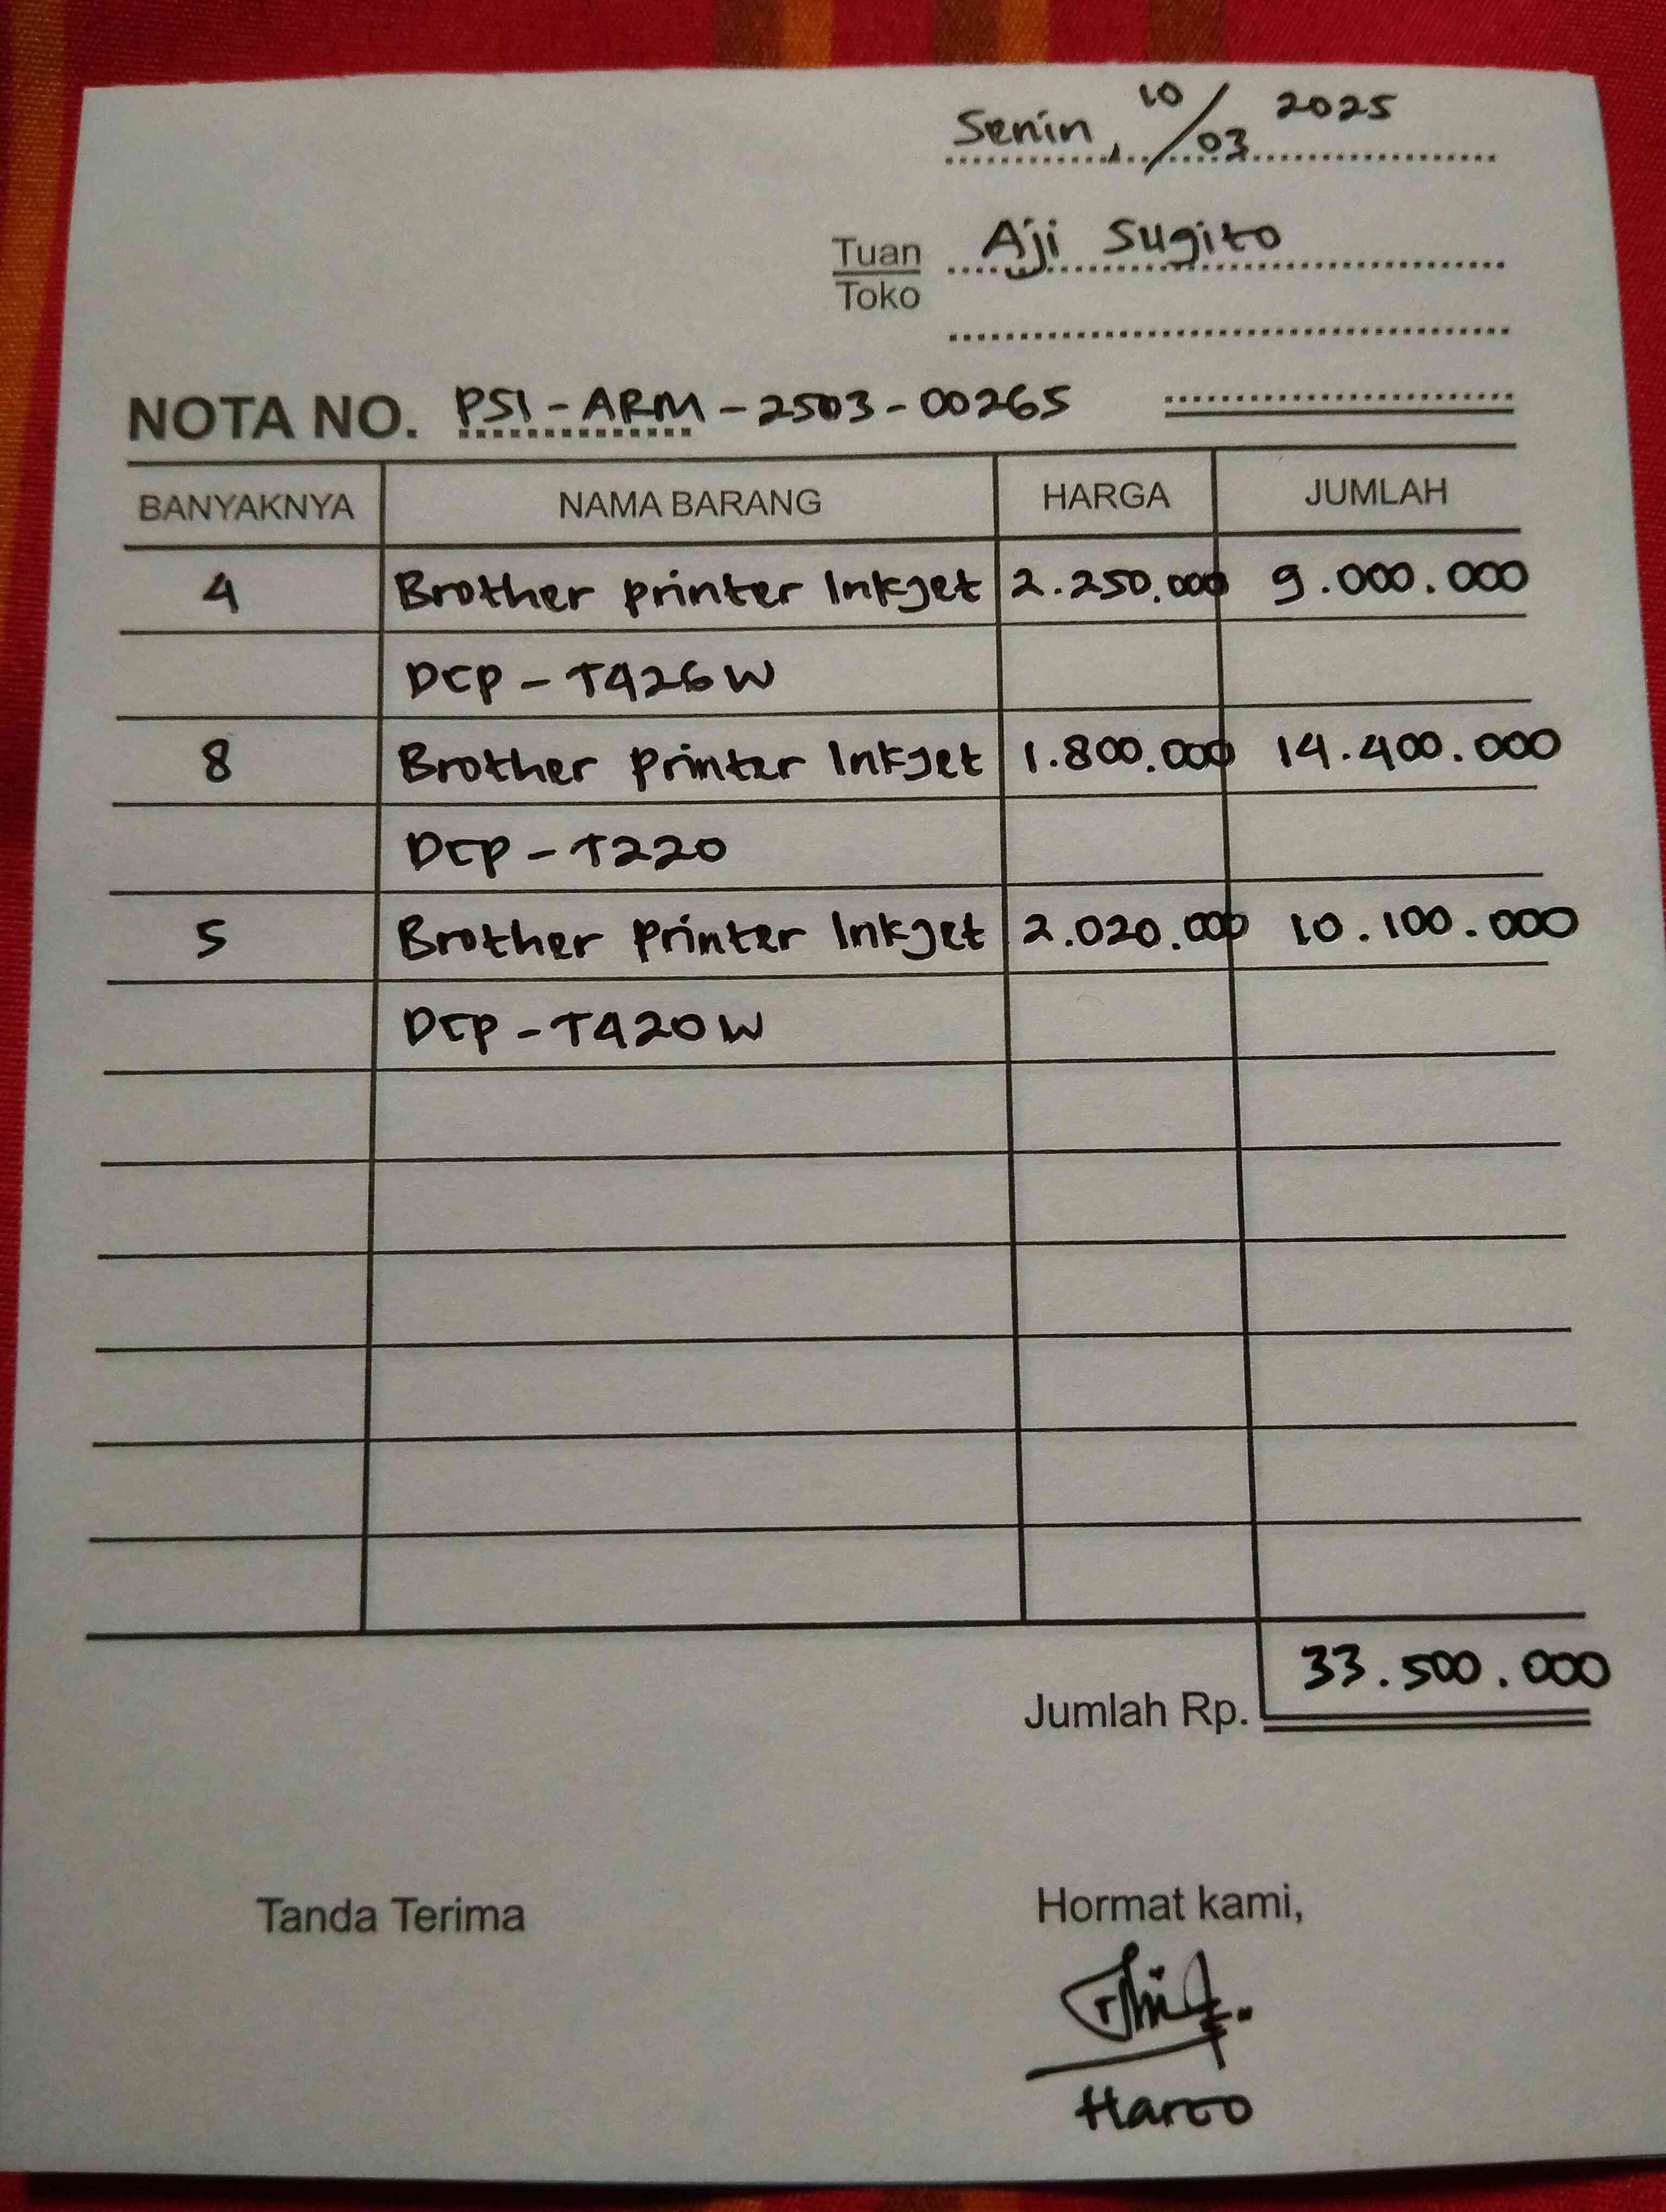 Senin, 10/03 2025
Tuan Aji Sugito
Toko
NOTA NO. PSI-ARM-2503-00265
BANYAKNYA NAMA BARANG HARGA JUMLAH
4 Brother printer Inkjet 2.250.000 9.000.000
DCP-T426W
8 Brother printer Inkjet 1.800.000 14.400.000
DCP-T220
5 Brother printer Inkjet 2.020.000 10.100.000
DCP-T420W
33.500.000
Jumlah Rp.
Tanda Terima Hormat kami,
Harco